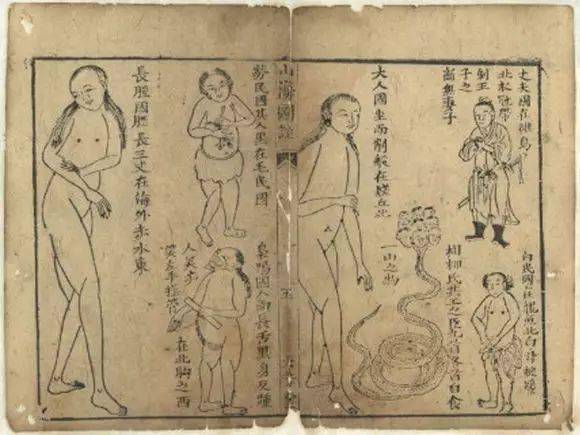 丈夫國在維鳥
北衣冠帶
劍王
子之
無妻子
白民國在龍魚北白身被髮
相柳氏共工之臣九首食
一山之物
大人國坐而削船在丘北
山海圖
五
勞民國其人黑在毛民國
國人面長舌黑身反踵
人笑亦
笑左手操管
在北朐之西
長脛國脛長三丈在海外赤水東